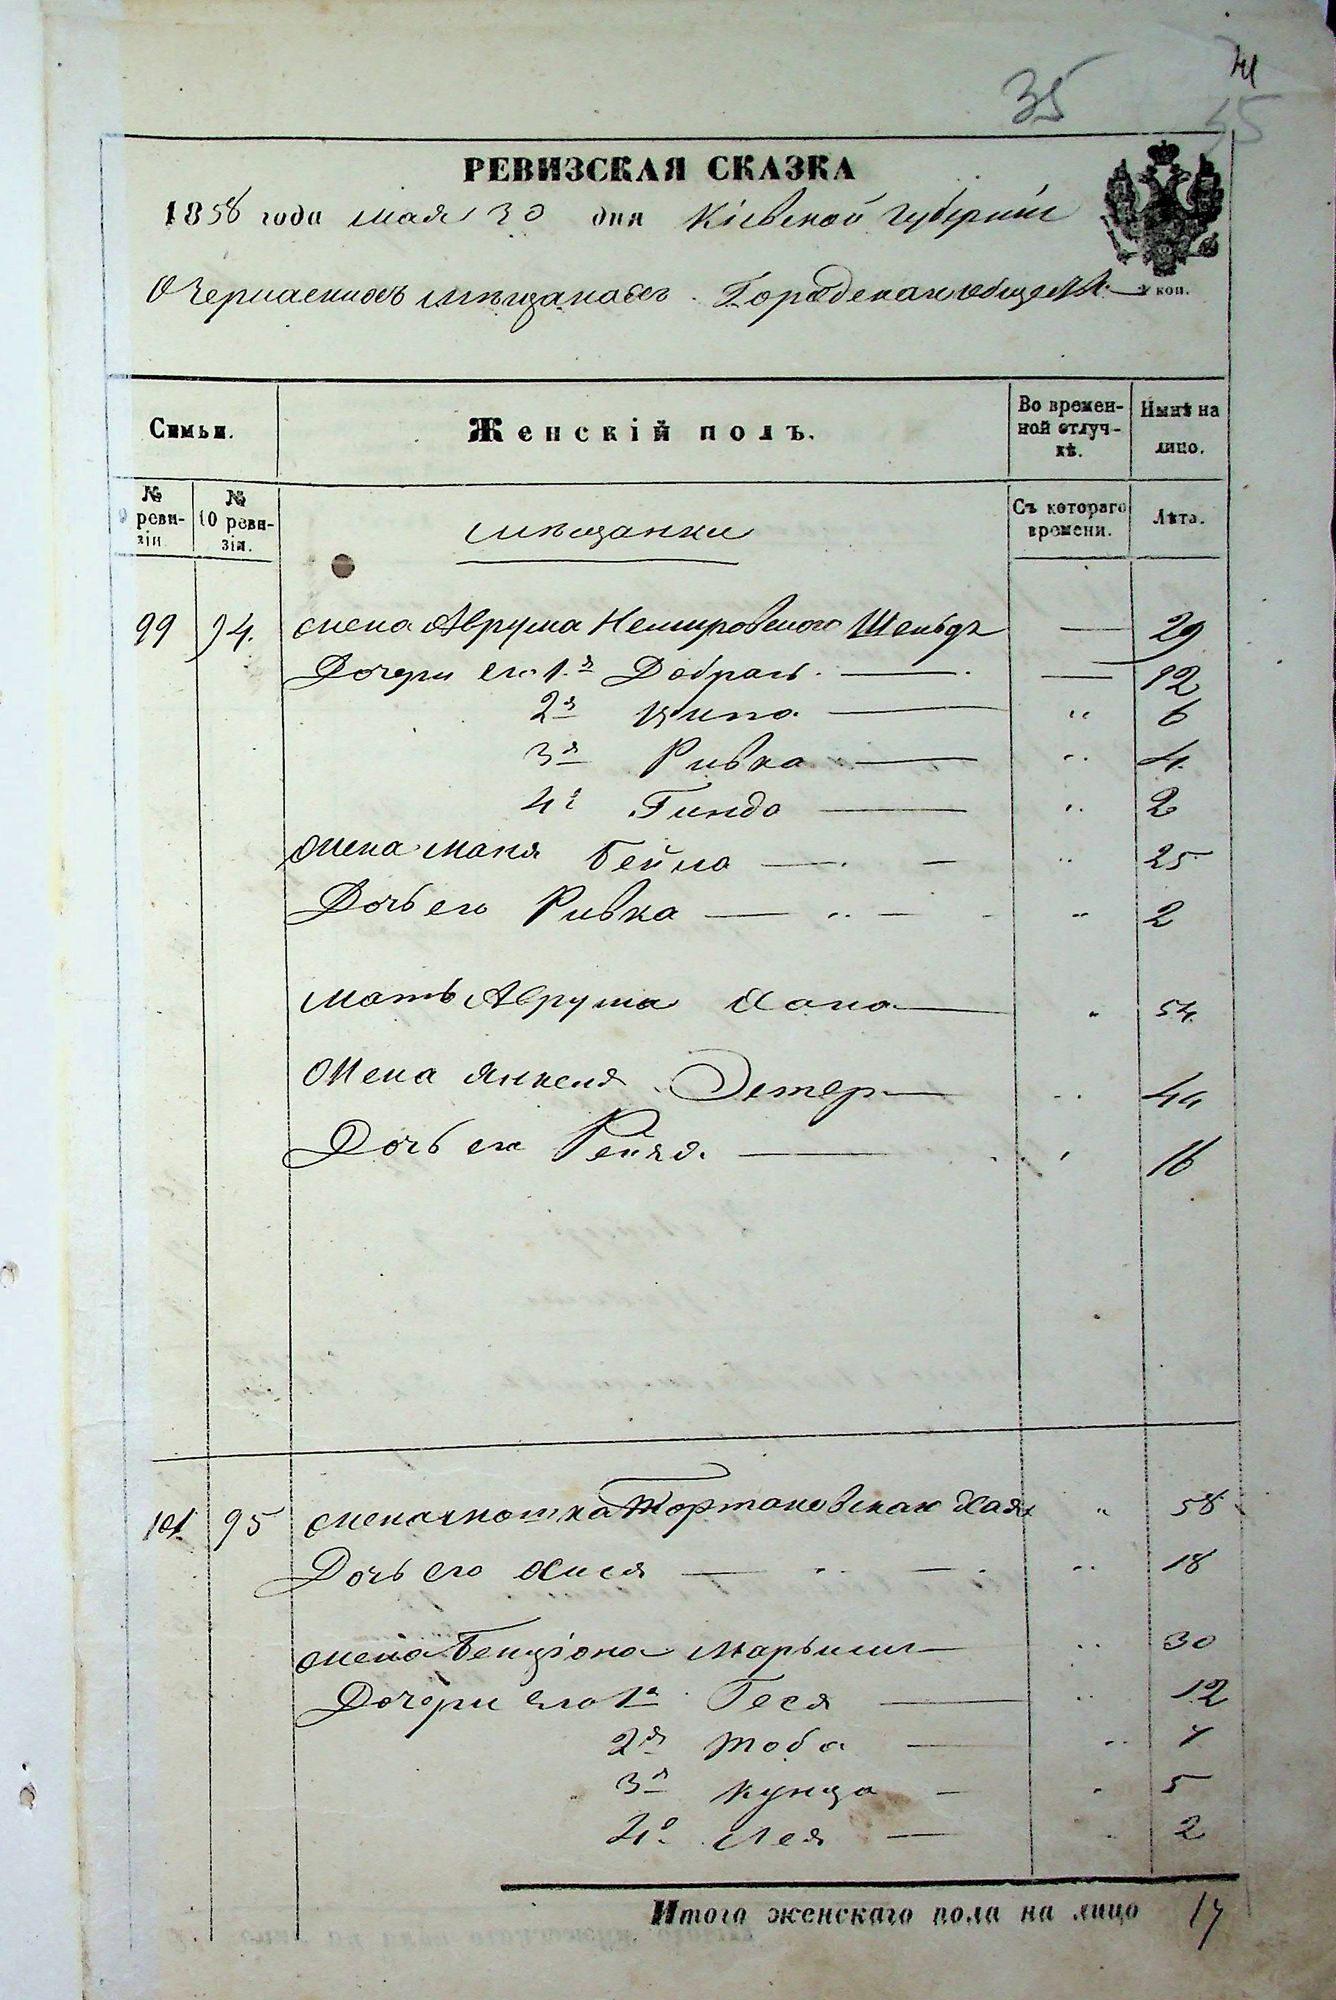 35
РЕВИЗСКАЯ СКАЗКА
1858 года мая 30 дня Кіевской Губерніи
О Черкаскихъ мѣщанахъ Городскаго общества
коп.
Семьи. Женскій полъ. Во временной отлучкѣ. Нынѣ на лицо.
№ 9 ревизіи. № 10 ревизія. мѣщанки Съ котораго времени. Лѣта.
99 94. Жена Аврума Немировского Шейндъ — 29
Дочери его 1.я Добрась — — 12
2я Ципа — " 6
3я Ривка — " 4
4я Гинда — " 2
Жена Маня Бейла — " 25
Дочь его Ривка — " 2
Мать Аврума Хана — " 54
Жена Янкеля Эстер — " 44
Дочь его Рейзя — " 16
101 95 Жена Мошка Тортаковская Хая " 58
Дочь его Хися — " 18
Жена Бенціона Марьясил — " 30
Дочери его 1я Геся — " 12
2я Тоба — " 7
3я Кунца — " 5
4я Лея — " 2
Итого женскаго пола на лицо 17